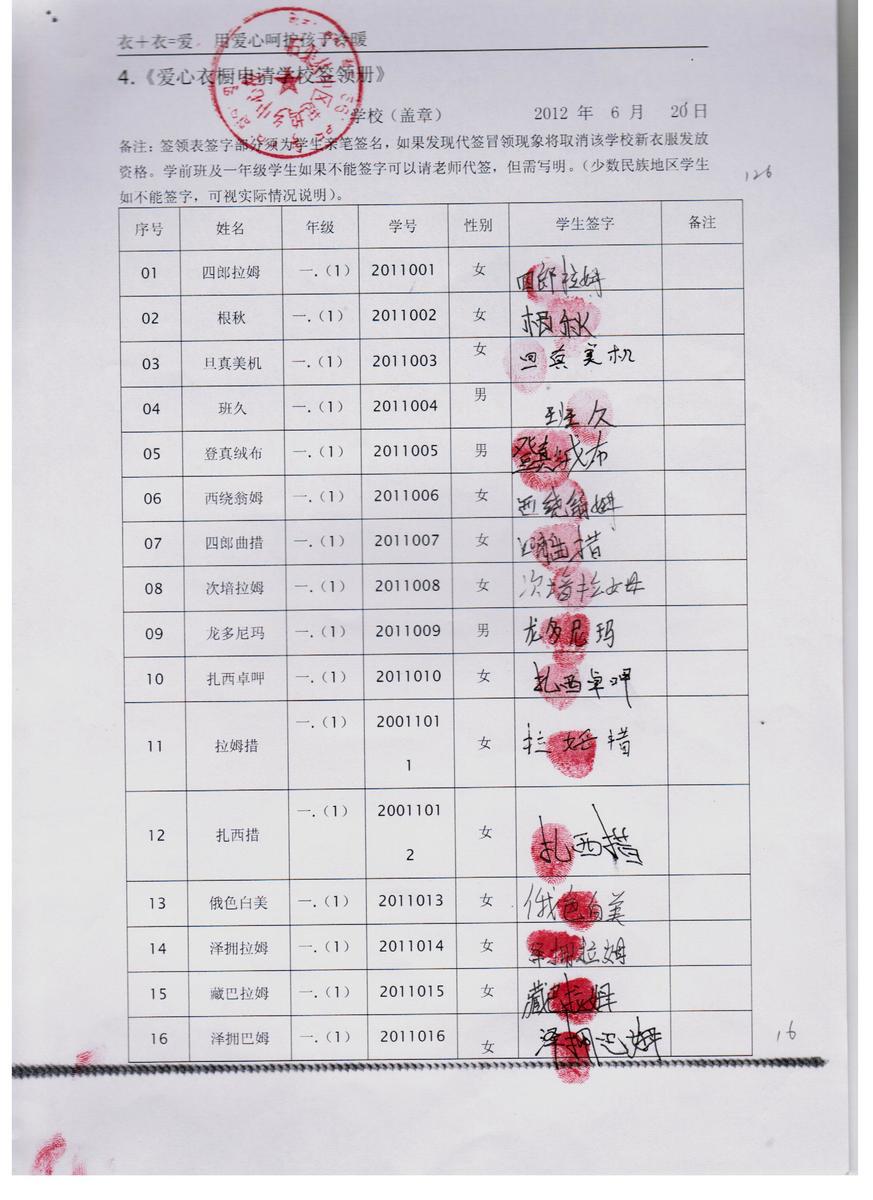 衣+衣=爱 用爱心呵护孩子冷暖
4.《爱心衣橱申请学校签领册》
学校（盖章） 2012 年 6 月 20日
备注：签领表签字部分须为学生亲笔签名，如果发现代签冒领现象将取消该学校新衣服发放
资格。学前班及一年级学生如果不能签字可以请老师代签，但需写明。（少数民族地区学生
如不能签字，可视实际情况说明）。
126
序号 姓名 年级 学号 性别 学生签字 备注
01 四郎拉姆 一.（1） 2011001 女 四郎拉姆
02 根秋 一.（1） 2011002 女 根秋
03 旦真美机 一.（1） 2011003 女 旦真美机
04 班久 一.（1） 2011004 男 班久
05 登真绒布 一.（1） 2011005 男 登真绒布
06 西绕翁姆 一.（1） 2011006 女 西绕翁姆
07 四郎曲措 一.（1） 2011007 女 四郎曲措
08 次培拉姆 .（1） 2011008 女 次培拉姆
09 龙多尼玛 一.（1） 2011009 男 龙多尼玛
10 扎西卓呷 一.（1） 2011010 女 扎西卓呷
11 拉姆措 一.（1） 2001101 女 拉姆措
1
12 扎西措 一.（1） 2001101 女 扎西措
2
13 俄色白美 一.（1） 2011013 女 俄色白美
14 泽拥拉姆 一.（1） 2011014 女 泽拥拉姆
15 藏巴拉姆 一.（1） 2011015 女 藏巴拉姆
16 泽拥巴姆 一.（1） 2011016 女 泽拥巴姆
16